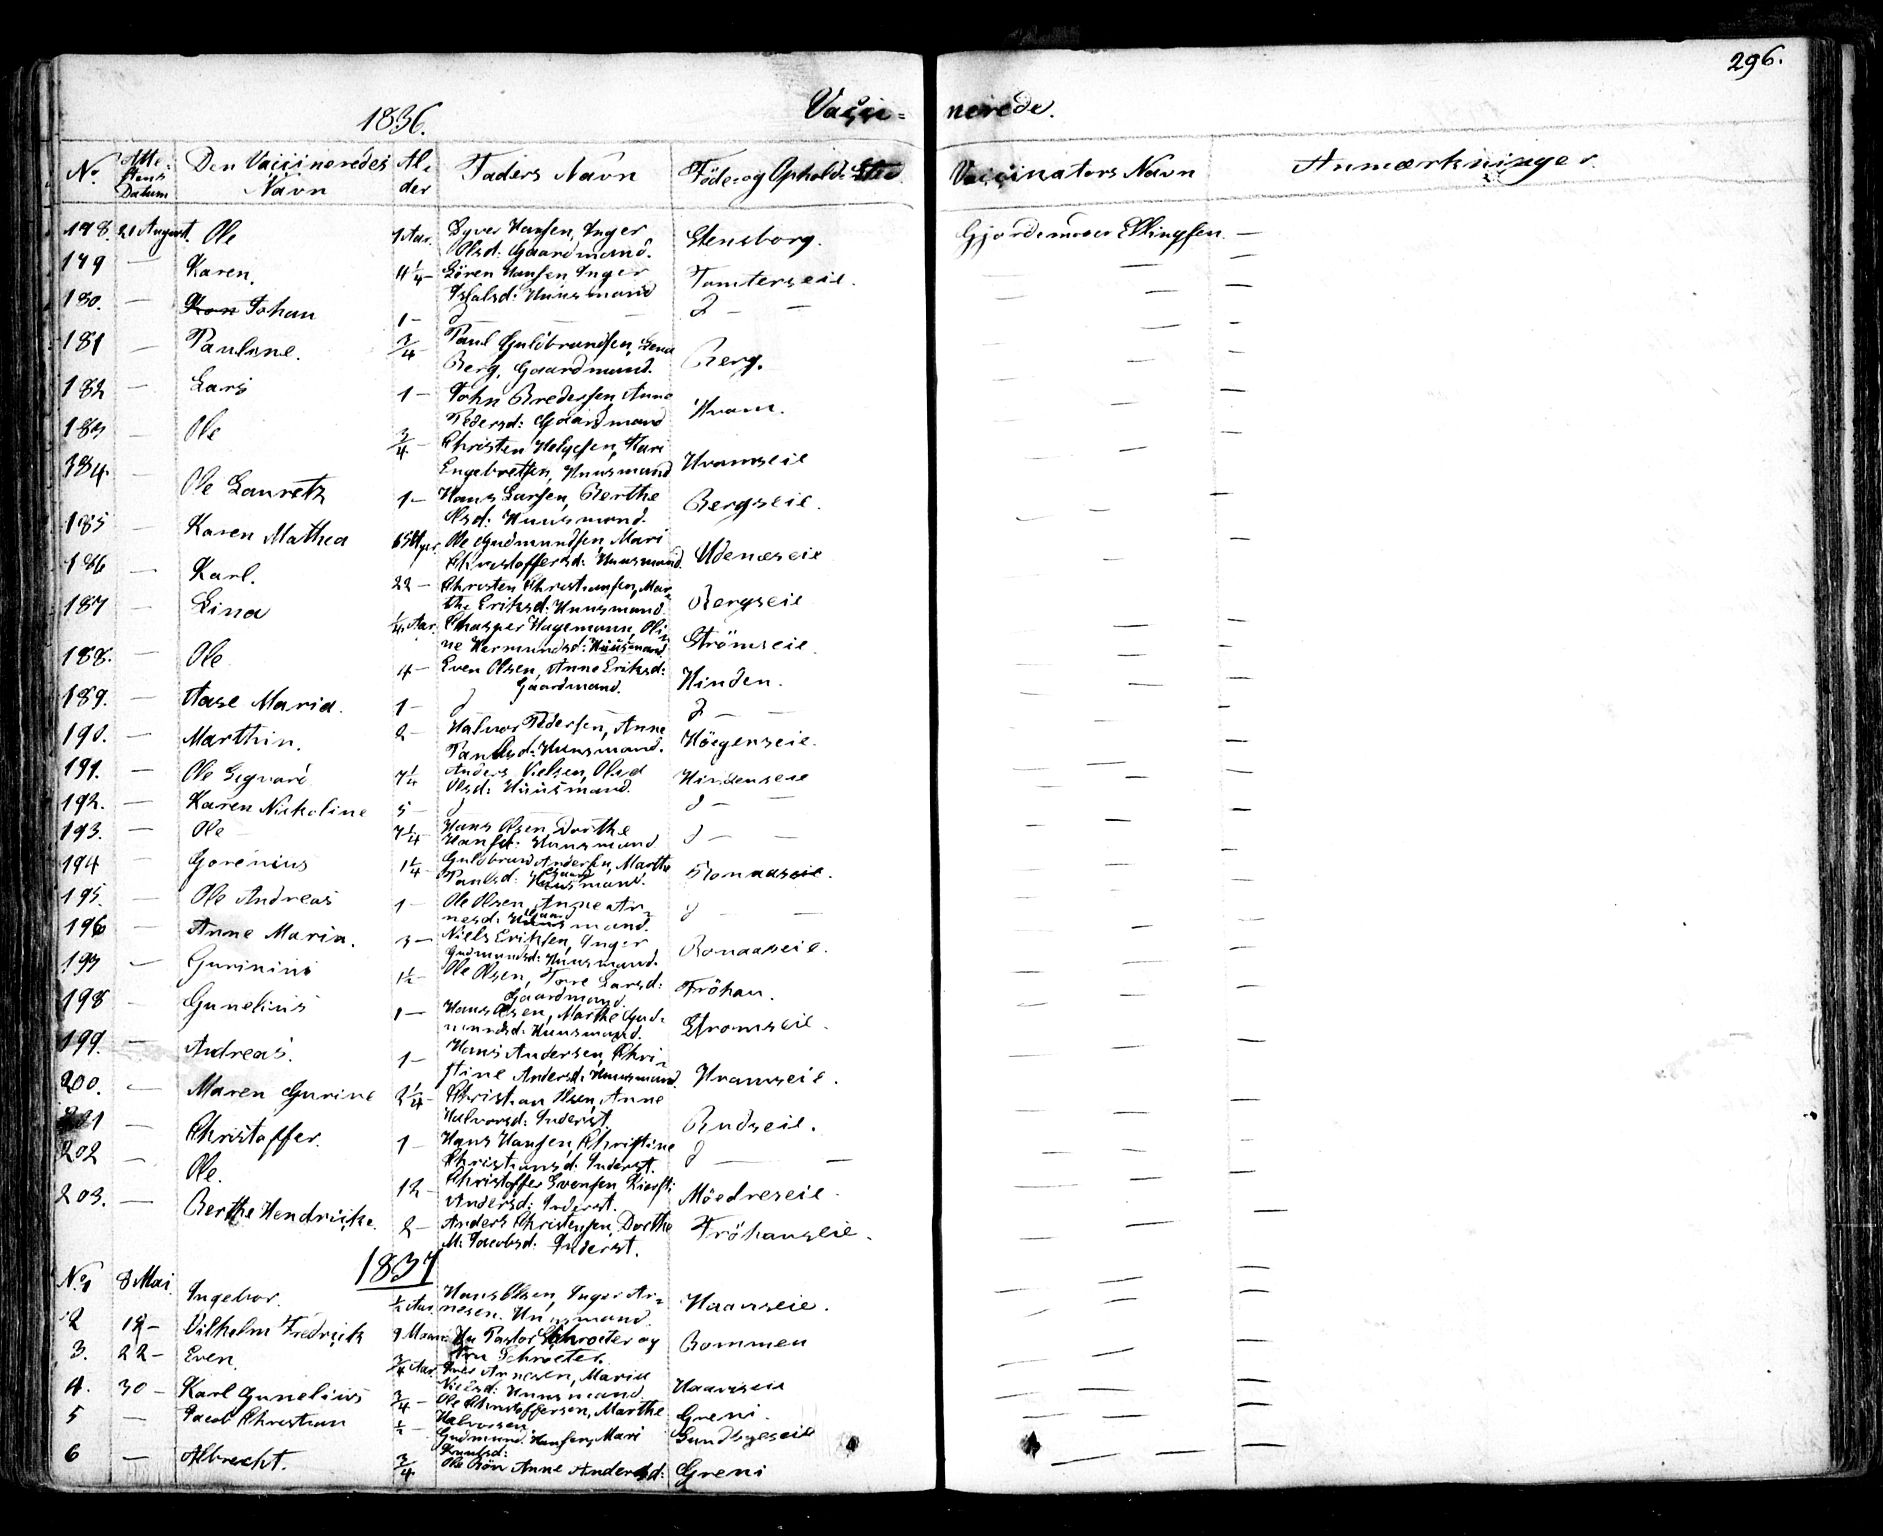 296.
1836. Vacci= nerede.
No. Atte= stens Datum Den Vaccineredes Navn Al= der Faders Navn Föde- og Ophold- Sted. Vaccinators Navn Anmærkninger.
178. 21 August. Ole 1 Aar. Syver Hansen, Inger Olsd: Gaardmand. Stensborg. Gjordemoder Ellingsen. —
179 — Karen. 4 1/4 — Sören Hansen Inger Huusmand Tomterseie. — —
180. — Johan 1 — d — — — —
181 — Pauline. 3/4 — Paul Guldbrandsen, Lena Berg, Gaardmand. Berg. — —
182 — Lars 1 — John Bredesen Anne Pedersd: Gaardmand Hvam. — —
183 — Ole 3/4 — Christen Helgesen, Kari Engebretsen, Huusmand Hvamseie — —
184. Ole Lauretz 1 — Hans Larsen, Berthe Olsd: Huusmand. Bergseie. — —
185 — Karen Mathea Uger. Ole Gudmundsen, Mari Christoffersd: Huusmand. Udenæseie — —
186 — Karl. 22 — Christen Christiansen, Mar= the Eriksd: Huusmand. Bergseie — —
187 — Lina 1/4 Aar. Chasper Hagemann, Oli= ne Hermundsd: Huusmand. Strömseie. — —
188. — Ole 4 — Even Olsen, Anne Eriksd: Gaardmand. Hinden. — —
189. — Aase Maria. 1 — d — d — — — —
190. — Marthin. 2 — Halvor Pedersen, Anne Paulsd: Huusmand. Höegenseie. — —
191. — Ole Sigvard 7 1/4 Anders Nielsen, Olea Olsd: Huusmand. Hindenseie — —
192. — Karen Nickoline 5 — d d — — — —
193. — Ole 7 1/4 — Hans Olsen, Dorthe Hansd: Huusmand d — — — —
194 — Gorenius 1 1/4 — Guldbrand Andersen, Marthe Paulsd: Gaardmand. — —
195. — Ole Andreas 1 — Ole Olsen, Anne Ar= nesd: Gaardmand. d — — — —
196 — Anne Maria. 3 — Niels Eriksen, Inger Gudmundsd: Huusmand. Bonaaseie. — —
197 — Gurinius 1 1/2 — Ole Olsen, Tore Larsd: Gaardmand. Fröhau. — —
198 — Gunelius 1 — Hans Olsen, Marthe Gud= mundsd: Huusmand. Stromseie. — —
199. — Andreas. 1 — Hans Andersen, Chri= stine Andersd: Huusmand. Hvamseie. — —
200. — Maren Gurine 2 1/4 — Christian Olsen, Anne Halvorsd: Inderst. Rudseie. — —
201 — Christoffer. 1 — Hans Hansen, Christine Christiansd: Inderst. d — — — —
202 — Ole. 12 — Christoffer Svensen Kiersti Andersd: Inderst. Möedreseie — —
203. — Berthe Hendricke. 2 — Anders Christensen, Dorthe M: Jacobsd: Inderst. Fröhauseie. — —
1837
No. 1 8 Mai. Ingebor. 1/2 Aar. Hans Olsen, Inger Ar= nesen. Huusmand. Haavseie. — —
2 19 — Vilhelm Fredrick 9 Maan: Hr Pastor Schroeter og Fru Schroeter. Bommen — —
3. 22 — Even. 3/4 Aar. Iver Arnesen, Marie Nielsd: Huusmand. Haavseie — —
4. 30 — Karl Gunelius 3/4 — Ole Christoffersen, Marthe Halvorsen, Greni. — —
5 — Jacob Christian 1/2 — Gudmund Hansen, Mari Knudsd: Sundbyeseie — —
6 — Albrecht. 3/4 Ole Anne Andersd: Greni — —